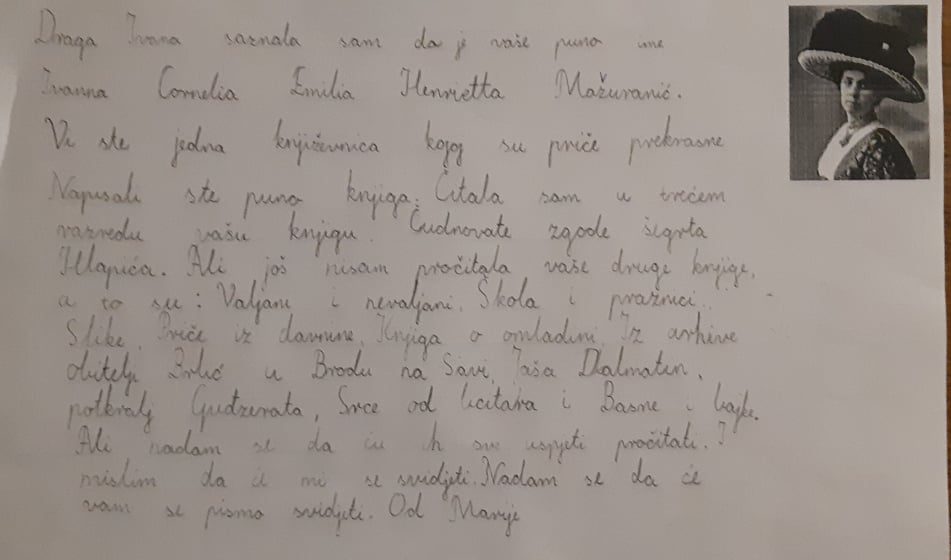 Draga Ivana saznala sam da je vaše puno ime
Ivanna Cornelia Emilia Henrietta Mažuranić.
Vi ste jedna književnica kojoj su priče prekrasne
Napisali ste puno knjiga. Čitala sam u trećem
razredu vašu knjigu. Čudnovate zgode šegrta
Hlapića. Ali još nisam pročitala vaše druge knjige,
a to su: Valjani i nevaljani, Škola i praznici,
Slike, Priče iz davnine, Knjiga o omladini, Iz arhive
obitelji Brlić u Brodu na Savi, Jaša Dalmatin,
potkralj Gudžerata, Srce od licitara i Basne i bajke.
Ali nadam se da ću ih sve uspjeti pročitati. I
mislim da će mi se svidjeti. Nadam se da će
vam se pismo svidjeti. Od Marije